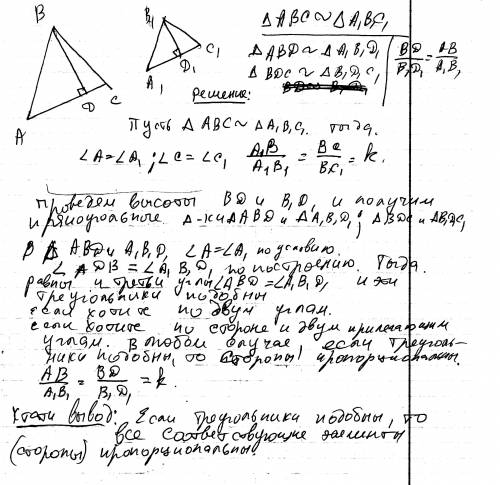 B
B₁
△ABC ∾ △A₁B₁C₁
C₁
D₁
A₁
△ABD ∾ △A₁B₁D₁
BD/B₁D₁ = AB/A₁B₁
△BDC ∾ △B₁D₁C₁
D
C
A
Решение:
Пусть △ABC ∾ △A₁B₁C₁. Тогда
∠A=∠A₁; ∠C=∠C₁ AB/A₁B₁ = BC/B₁C₁ = k.
Проведем высоты BD и B₁D₁ и получим
прямоугольные △-ки △ABD и △A₁B₁D₁; △BDC и △B₁D₁C₁
В △ ABD и A₁B₁D₁ ∠A=∠A₁ по условию.
∠ADB = ∠A₁B₁D₁ по построению. Тогда
равны и третьи углы ∠ABD = ∠A₁B₁D₁ и эти
треугольники подобны
если хотите по двум углам.
если хотите по стороне и двум прилегающим
углам. В любом случае, если треуголь-
ники подобны, то стороны пропорциональны.
AB/A₁B₁ = BD/B₁D₁ = k.
Кстати вывод: Если треугольники подобны, то
все соответствующие элементы
(стороны) пропорциональны